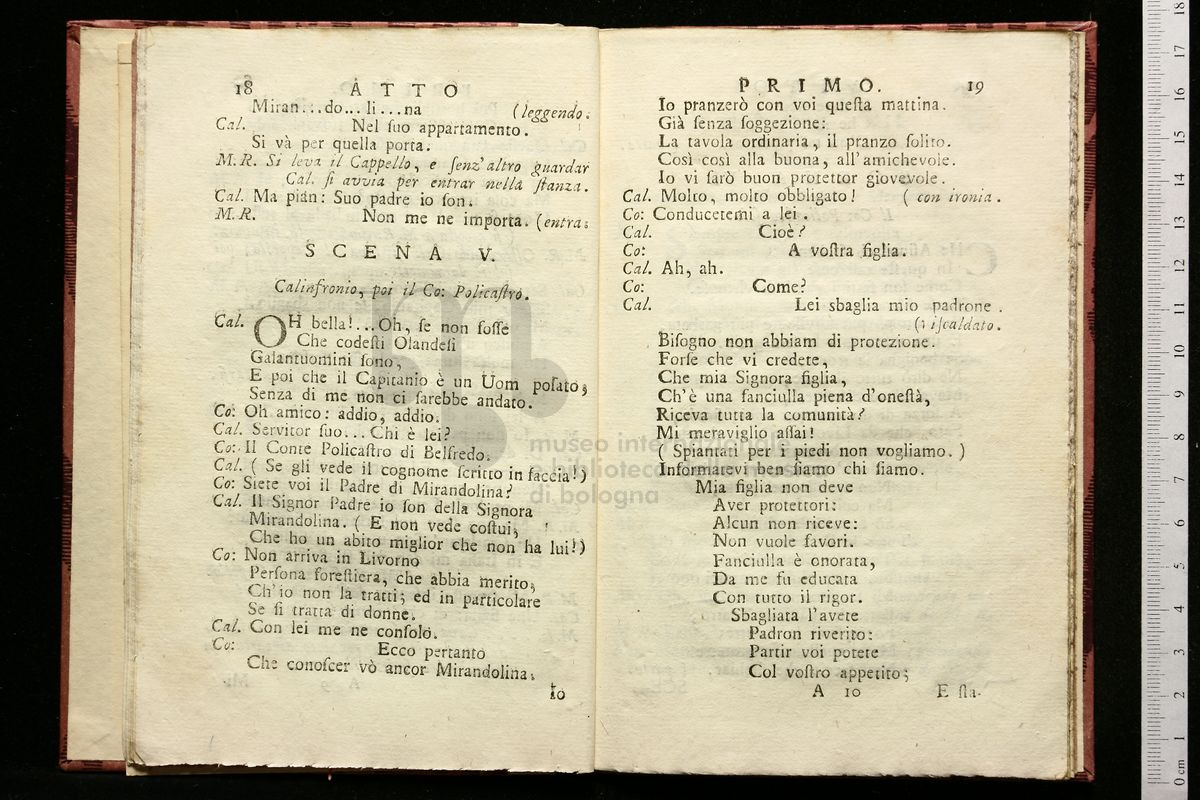 18 ATTO
Miran...do...li...na (leggendo.
Cal. Nel ſuo appartamento.
Si và per quella porta.
M.R. Si leva il Cappello, e ſenz'altro guardar
Cal. ſi avvia per entrar nella ſtanza.
Cal. Ma pian: Suo padre io ſon.
M.R. Non me ne importa. (entra.
SCENA V.
Calinfronio, poi il Co: Policaſtro.
Cal. OH bella!...Oh, ſe non foſſe
Che codeſti Olandeſi
Galantuomini ſono,
E poi che il Capitanio è un Uom poſato,
Senza di me non ci ſarebbe andato.
Co: Oh amico: addio, addio.
Cal. Servitor ſuo... Chi è lei?
Co: Il Conte Policaſtro di Belfredo.
Cal. ( Se gli vede il cognome ſcritto in faccia!)
Co: Siete voi il Padre di Mirandolina?
Cal. Il Signor Padre io ſon della Signora
Mirandolina. ( E non vede coſtui,
Che ho un abito miglior che non ha lui!)
Co: Non arriva in Livorno
Perſona foreſtiera, che abbia merito,
Ch'io non la tratti; ed in particolare
Se ſi tratta di donne.
Cal. Con lei me ne conſolo.
Co: Ecco pertanto
Che conoſcer vò ancor Mirandolina.
Io
PRIMO. 19
Io pranzerò con voi queſta mattina.
Già ſenza ſoggezione:
La tavola ordinaria, il pranzo ſolito.
Così così alla buona, all'amichevole.
Io vi ſarò buon protettor giovevole.
Cal. Molto, molto obbligato! ( con ironia.
Co: Conducetemi a lei.
Cal. Cioè?
Co: A voſtra figlia.
Cal. Ah, ah.
Co: Come?
Cal. Lei sbaglia mio padrone.
( iſcaldato.
Biſogno non abbiam di protezione.
Forſe che vi credete,
Che mia Signora figlia,
Ch'è una fanciulla piena d'oneſtà,
Riceva tutta la comunità?
Mi meraviglio aſſai!
( Spiantati per i piedi non vogliamo. )
Informatevi ben ſiamo chi ſiamo.
Mia figlia non deve
Aver protettori:
Alcun non riceve:
Non vuole favori.
Fanciulla è onorata,
Da me fu educata
Con tutto il rigor.
Sbagliata l'avete
Padron riverito:
Partir voi potete
Col voſtro appetito;
A 10 E ſta-
museo internazionale
e biblioteca
di bologna